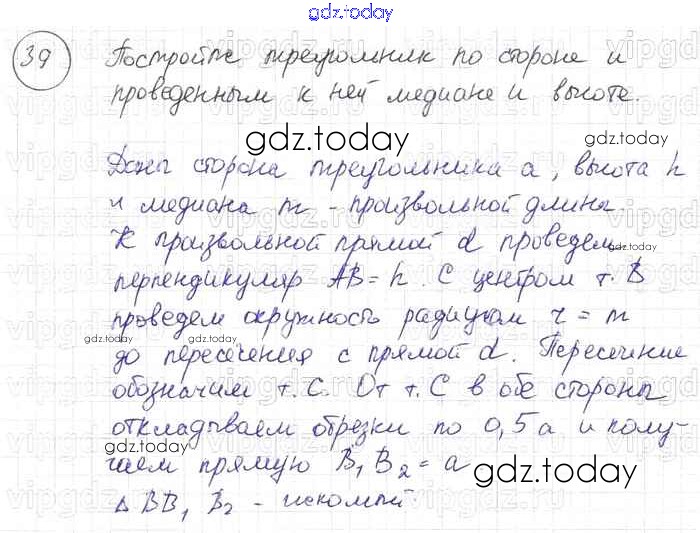 gdz.today
39 Постройте треугольник по стороне и
проведенным к ней медиане и высоте.
gdz.today
Даны сторона треугольника a, высота h
и медиана m - произвольной длины.
К произвольной прямой d проведем
gdz.today
перпендикуляр AB = h. С центром т. B
проведем окружность радиусом r = m
gdz.today
до пересечения с прямой d. Пересечение
обозначим т. C. От т. C в обе стороны
откладываем отрезки по 0,5a и полу-
gdz.today
чаем прямую B₁B₂ = a
gdz.today
∆ BB₁B₂ - искомый
gdz.today